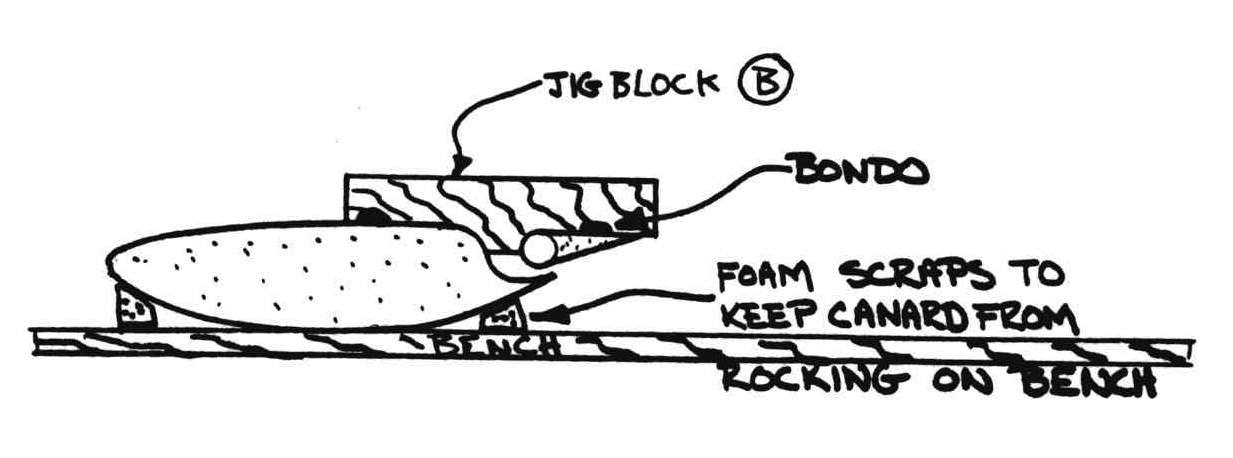 JIG BLOCK B
BONDO
FOAM SCRAPS TO
KEEP CANARD FROM
BENCH
ROCKING ON BENCH